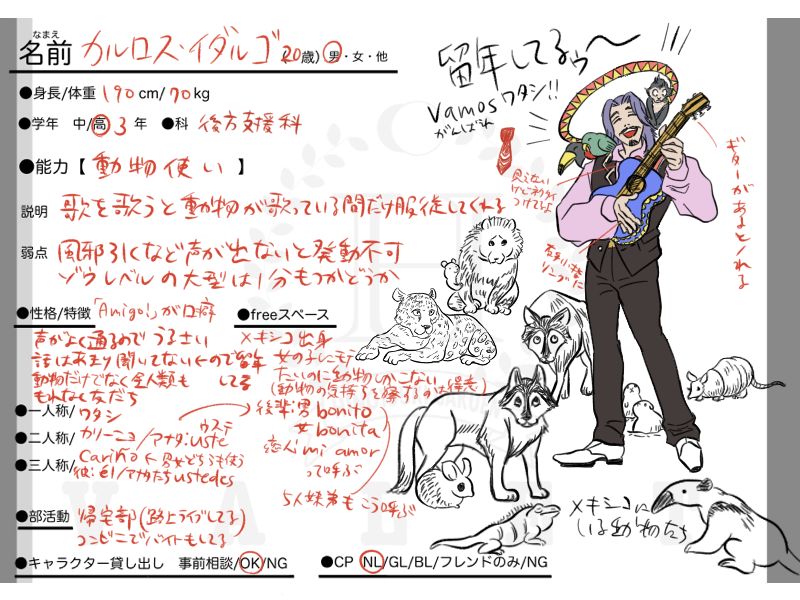 なまえ
名前 カルロス・イダルゴ (20歳) 男・女・他
●身長/体重 190cm/70kg
●学年 中/高 3年 ●科 後方支援科
●能力【動物使い】
説明 歌を歌うと動物が歌っている間だけ服従してくれる
弱点 風邪引くなど声が出ないと発動不可
ゾウレベルの大型は1分もつかどうか
●性格/特徴 「Amigo!」が口癖
声がよく通るのでうるさい
話はあまり聞いてない←ので留年してる
動物だけでなく全人類も
もれなく友だち
●freeスペース
メキシコ出身
女の子にモテたいのに動物しかこない
(動物の気持ちを察するのは得意)
●一人称/ワタシ
●二人称/カリーニョ/アナタ:usteウステ
●三人称/Cariño←男女どちらも使う
彼:él/アナタたちustedes
後輩:男bonito
女bonita
恋人mi amor
って呼ぶ
5人妹弟もこう呼ぶ
●部活動 帰宅部(路上ライブしてる)
コンビニでバイトもしてる
●キャラクター貸し出し 事前相談/OK/NG
●CP NL/GL/BL/フレンドのみ/NG
留年してるぅ〜
Vamosワタシ!!
がんばれ
見えない
けどネクタイ
つけてるよ
ギターがあるとノれる
メキシコに
いる動物たち